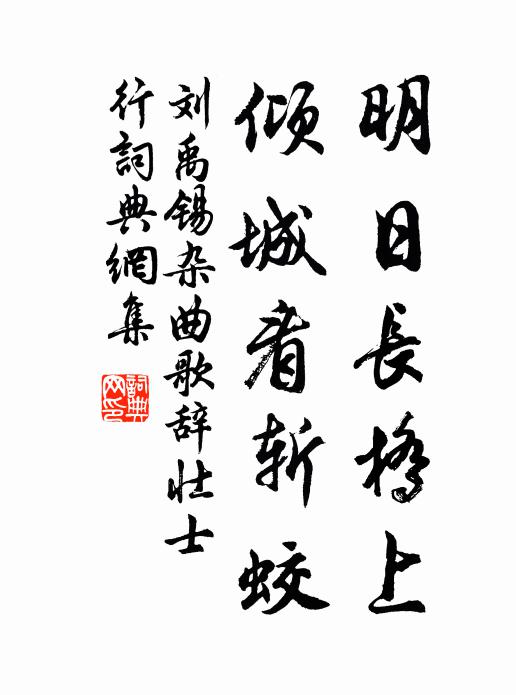 明日長橋上
傾城看斬蛟
刘禹锡杂曲歌辞壮士
行詞典網集
詞典
网印